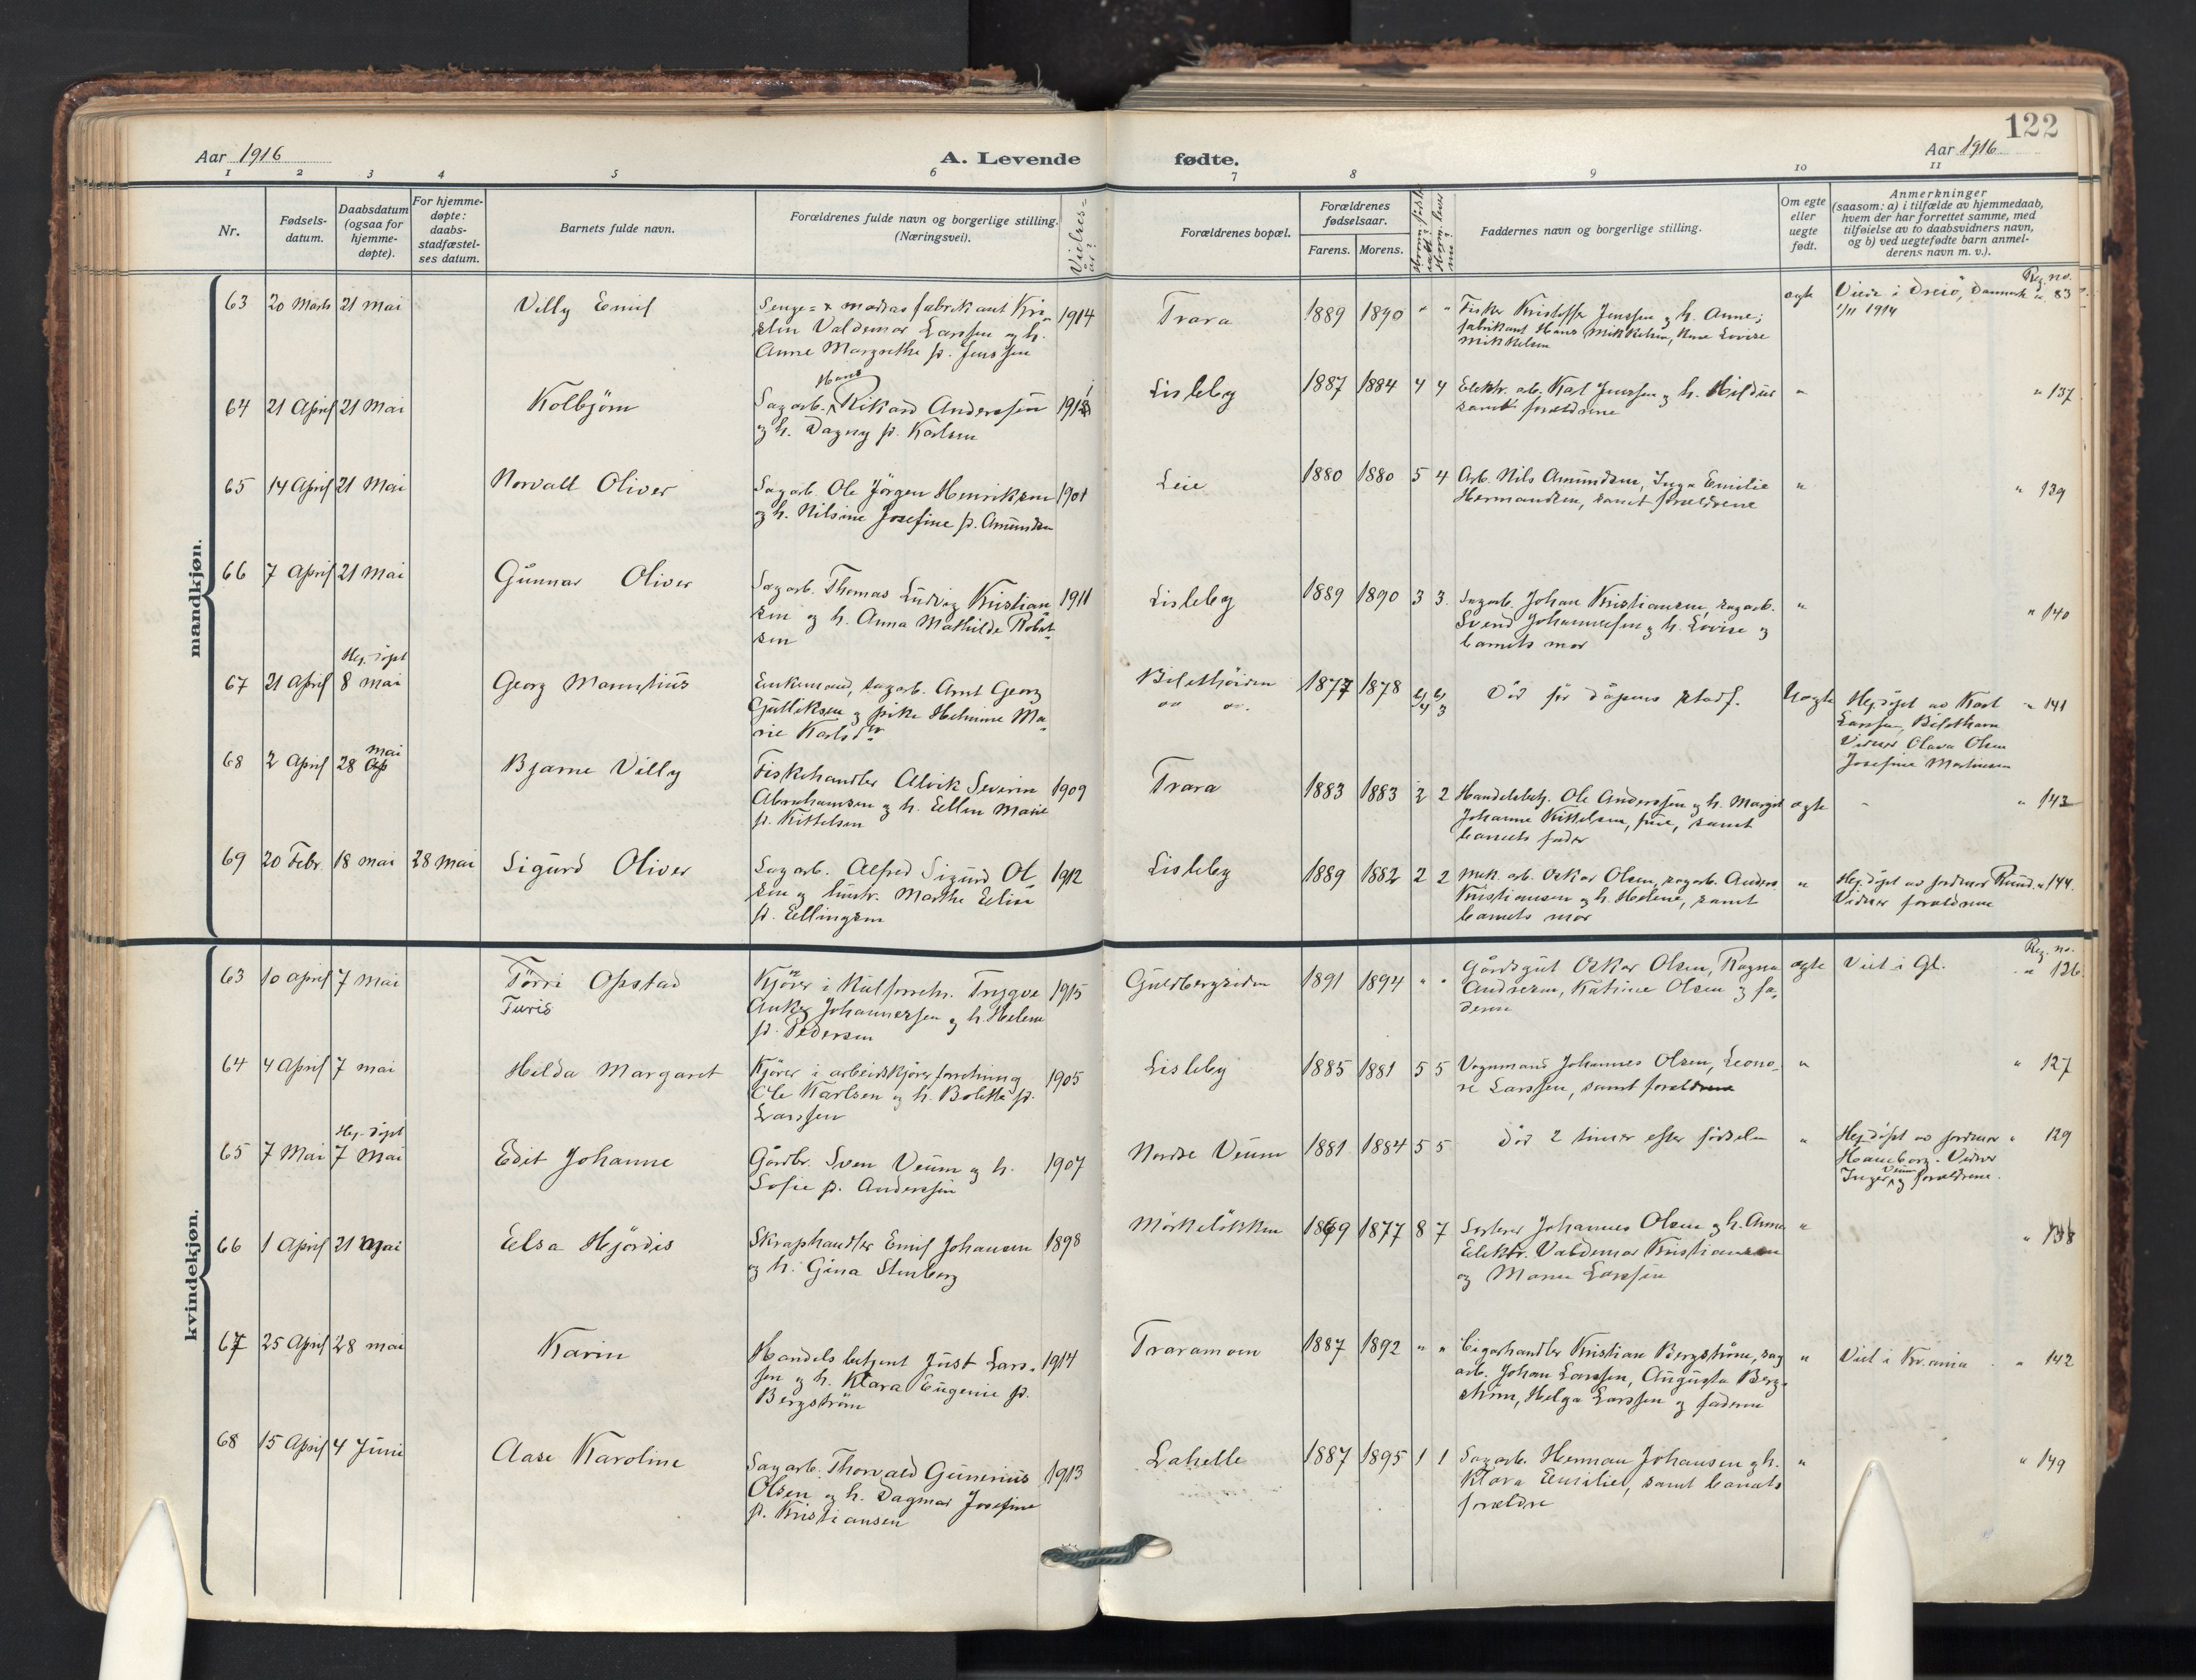 122
Aar 1916
A. Levende fødte.
Aar 1916
1 2 3 4 5 6 7 8 9 10 11
Nr.
Fødsels-
datum.
Daabsdatum
(ogsaa for
hjemme-
døpte).
For hjemme-
døpte:
daabs-
stadfæstel-
ses datum.
Barnets fulde navn.
Forældrenes fulde navn og borgerlige stilling.
(Næringsvei).
Vielses-
år?
Forældrenes bopæl.
Forældrenes
fødselsaar.
Farens. Morens.
Faddernes navn og borgerlige stilling.
Om egte
eller
uegte
født.
Anmerkninger
(saasom: a) i tilfælde av hjemmedaab,
hvem der har forrettet samme, med
tilføielse av to daabsvidners navn,
og b) ved uegtefødte barn anmel-
derens navn m. v.).
mandkjøn.
Reg. no.
63 20 Marts 21 Mai Villy Emil
Senge- & madrasfabrikant Kri-
stin Valdemar Larssen og h.
Anne Margrethe f. Jenssen
1914 Trara 1889 1890 " "
Fisker Kristoffer Jenssen og h. Anne;
fabrikant Hans Mikkelsen, Anne Lovise
Mikkelsen
egte
Viede i Dreiö, Danmark " 83
1/11 1914
64 21 April 21 Mai Kolbjörn
Hans
Sagarb. Rikard Anderssen
og h. Dagny f. Karlsen
1911 Lisleby 1887 1884 4 4
Elektr. arb. Karl Jenssen og h. Hildur
samt forældrene
" " 137
65 14 April 21 Mai Norvall Oliver
Sagarb. Ole Jörgen Henriksen
og h. Nilsine Josefine f. Amundsen
1901 Leie 1880 1880 5 4
Arb. Nils Amundsen, Inga Emilie
Hermansen, samt forældrene
" " 139
66 7 April 21 Mai Gunnar Oliver
Sagarb. Thomas Ludvig Kristian
sen og h. Anna Mathilde Robert
sen
1911 Lisleby 1889 1890 3 3
Sagarb. Johan Kristiansen, sagarb.
Svend Johannesen og h. Lovise og
barnets mor
" " 140
Hj. döpt
67 21 April 8 Mai Georg Mauritius
Enkemand, sagarb. Arnt Georg
Gulliksen og pike Helmine Ma-
rie Karlsdtr
1877 1878
Död för dåpens stadf.
Uegte
Hj. döpt av Karl " 141
Larssen,
Vidner Olava Olsen
Josefine Martinsen
68 2 April 28 Mai Bjarne Villy
Fiskehandler Alvik Severin
Abrahamsen og h. Ellen Marie
f. Kittelsen
1909 Trara 1883 1883 2 2
Handelsbetj. Ole Anderssen og h. Margit
Johanne Kittelsen, frue, samt
barnets fader
egte " 143
69 20 Febr. 18 mai 28 Mai Sigurd Oliver
Sagarb. Alfred Sigurd Ol
sen og hustr. Marthe Eline
f. Ellingsen
1912 Lisleby 1889 1882 2 2
Mek. arb. Oskar Olsen, sagarb. Anders
Kristiansen og h. Helene, samt
barnets mor
"
Hj. döpt av jordmor Rund. " 144.
Vidner forældrene
kvindekjøn.
Reg. no.
63 10 april 7 Mai Törri Opstad
Turis
Kjörer i kulforretn. Trygve
Anker Johannessen og h. Helene
f. Pedersen
1915 Guldbergsiden 1891 1894 " "
Gårdsgut Oskar Olsen, Ragna
Andresen, Katinie Olsen og fa-
deren
egte Viet i Gl. " 126
64 4 April 7 mai Hilda Margaret
Kjörer i arbeidskjörerforretning
Ole Karlsen og h. Bolette f.
Larssen
1905 Lisleby 1885 1881 5 5
Vognmand Johannes Olsen, Leono-
re Larssen, samt forældrene
" " 127
Hj. döpt
65 7 Mai 7 Mai Edit Johanne
Gårdbr. Sven Veum og h.
Sofie f. Anderssen
1907 Nordre Veum 1881 1884 5 5
Död 2 timer efter födselen
"
Hj. döpt av jordmor " 129
Haneborg. Vidner
Inger Veum og forældrene.
66 1 April 21 Mai Elsa Hjördis
Skraphandler Emil Johansen
og h. Gina Stenberg
1898 Mörkelökken 1869 1877 8 7
Johannes Olsen og h. Anna
Elektr. Valdemar Kristiansen
og Marie Larssen
" " 138
67 25 April 28 mai Karin
Handelsbetjent Just Lars-
sen og h. Klara Eugenie f.
Bergström
1914 Traramoen 1887 1892 " "
Cigarhandler Kristian Bergström, sag
arb. Johan Larssen, Augusta Berg-
ström, Helga Larssen og faderen
" Viet i Kr.ania " 142
68 15 April 4 Juni Aase Karoline
Sagarb. Thorvald Gunerius
Olsen og h. Dagmar Josefine
f. Kristiansen
1913 Lahelle 1887 1895 1 1
Sagarb. Herman Johansen og h.
Klara Emilie, samt barnets
forældre
" " 149